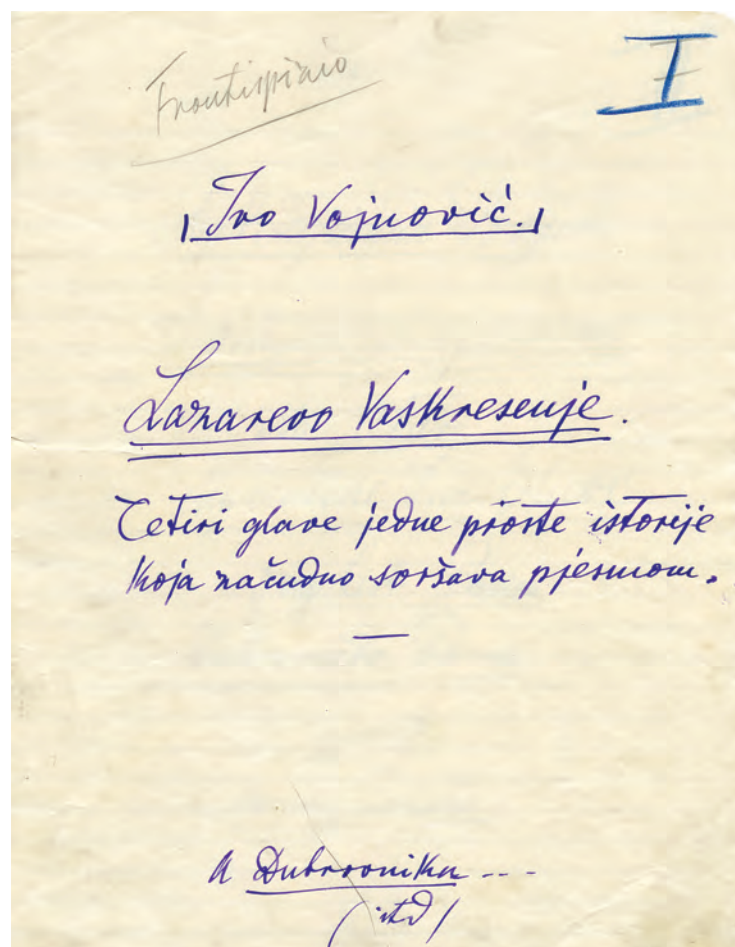 Frontispicio
I
Ivo Vojnović.
Lazarevo Vaskresenje.
Četiri glave jedne proste istorije
koja začudno svršava pjesmom.
—
U Dubrovniku ---
(itd/